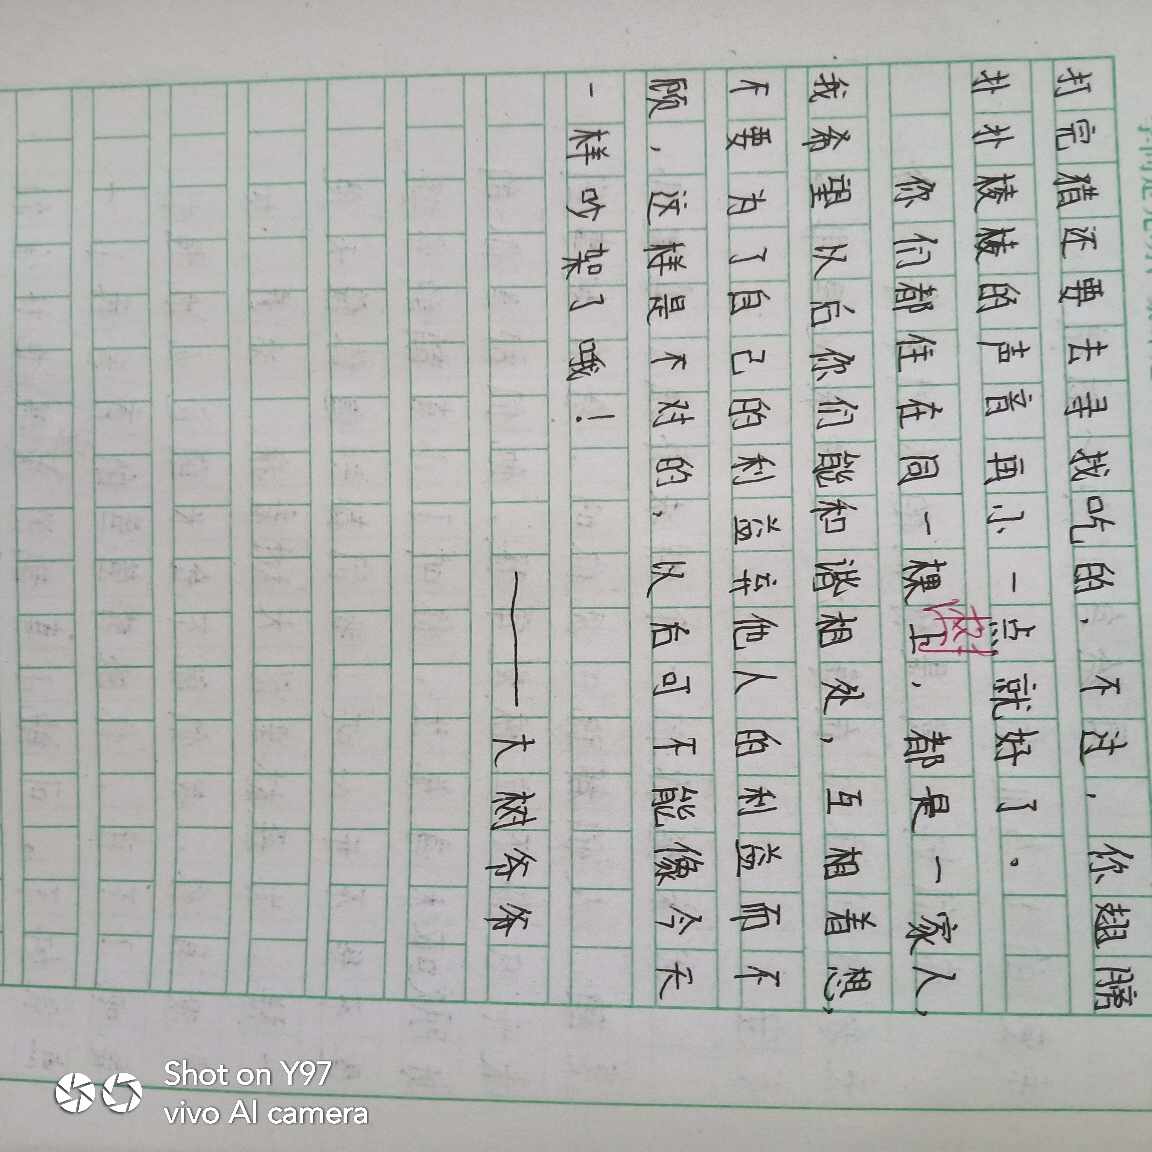 打完猎还要去寻找吃的,不过,你翅膀
扑扑棱棱的声音再小一点就好了。
你们都住在同一棵树上,都是一家人,
我希望以后你们能和谐相处,互相着想,
不要为了自己的利益弃他人的利益而不
顾,这样是不对的,以后可不能像今天
一样吵架了哦!
——大树爷爷
Shot on Y97
vivo AI camera